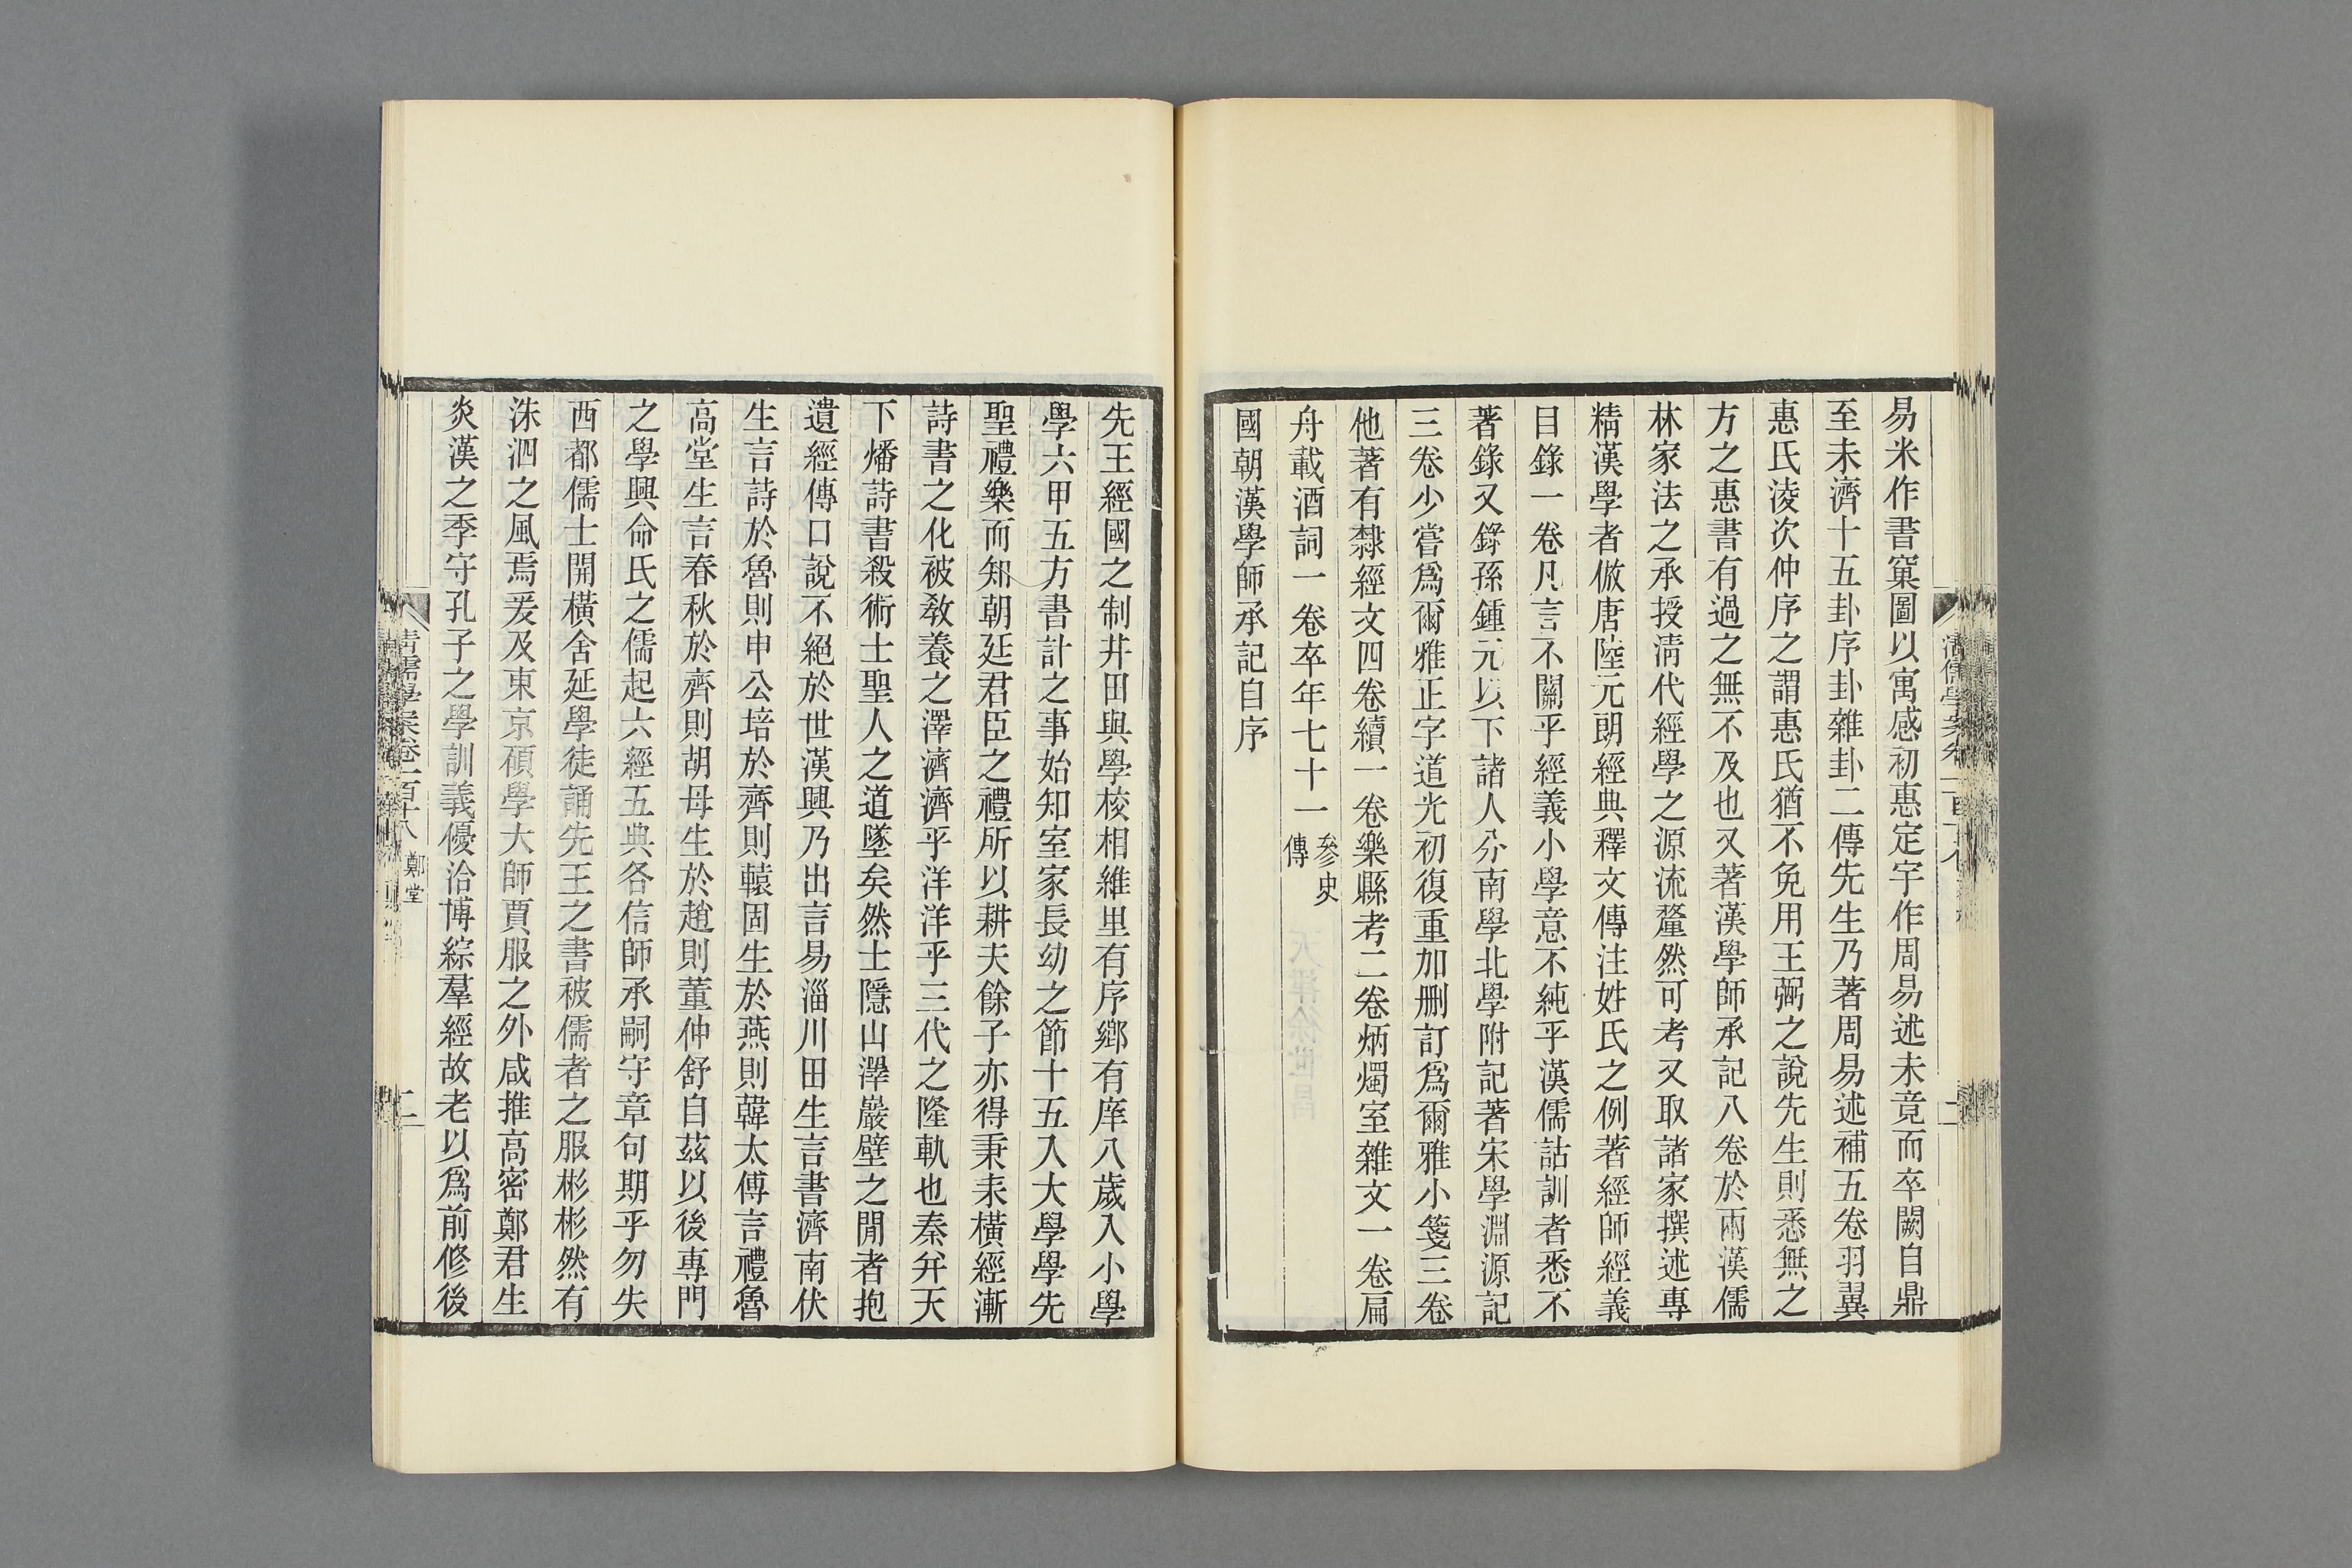 易米作書窠圖以寓感初惠定宇作周易述未竟而卒闕自鼎
至未濟十五卦序卦雜卦二傳先生乃著周易述補五卷羽翼
惠氏淩次仲序之謂惠氏猶不免用王弼之說先生則悉無之
方之惠書有過之無不及也又著漢學師承記八卷於兩漢儒
林家法之承授淸代經學之源流釐然可考又取諸家撰述專
精漢學者倣唐陸元朗經典釋文傳注姓氏之例著經師經義
目錄一卷凡言不關乎經義小學意不純乎漢儒詁訓者悉不
著錄又錄孫鍾元以下諸人分南學北學附記著宋學淵源記
三卷少嘗爲爾雅正字道光初復重加删訂爲爾雅小箋三卷
他著有隸經文四卷續一卷樂縣考二卷炳燭室雜文一卷扁
舟載酒詞一卷卒年七十一
參史
傳
國朝漢學師承記自序
先王經國之制井田與學校相維里有序鄉有庠八歲入小學
學六甲五方書計之事始知室家長幼之節十五入大學學先
聖禮樂而知朝延君臣之禮所以耕夫餘子亦得秉耒橫經漸
詩書之化被敎養之澤濟濟乎洋洋乎三代之隆軌也秦幷天
下燔詩書殺術士聖人之道墜矣然士隱山澤巖壁之閒者抱
遺經傳口說不絕於世漢興乃出言易淄川田生言書濟南伏
生言詩於魯則申公培於齊則轅固生於燕則韓太傅言禮魯
高堂生言春秋於齊則胡母生於趙則董仲舒自茲以後專門
之學興命氏之儒起六經五典各信師承嗣守章句期乎勿失
西都儒士開橫舍延學徒誦先王之書被儒者之服彬彬然有
洙泗之風焉爰及東京碩學大師賈服之外咸推高密鄭君生
炎漢之季守孔子之學訓義優洽博綜羣經故老以爲前修後
淸儒學案卷一百十八 鄭堂
二